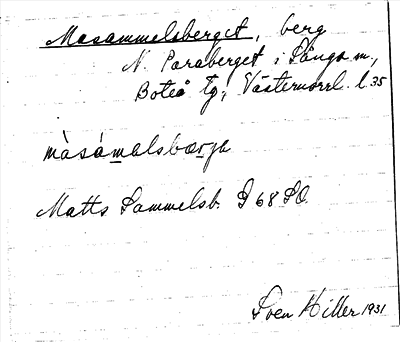 Masammelsberget, berg
N. Paraberget i Långs m.,
Boteå tg, Västernorrl. l. 35
màsámalsbærja
Matts Sammelsb. G 68 SO
Sven Hiller 1931